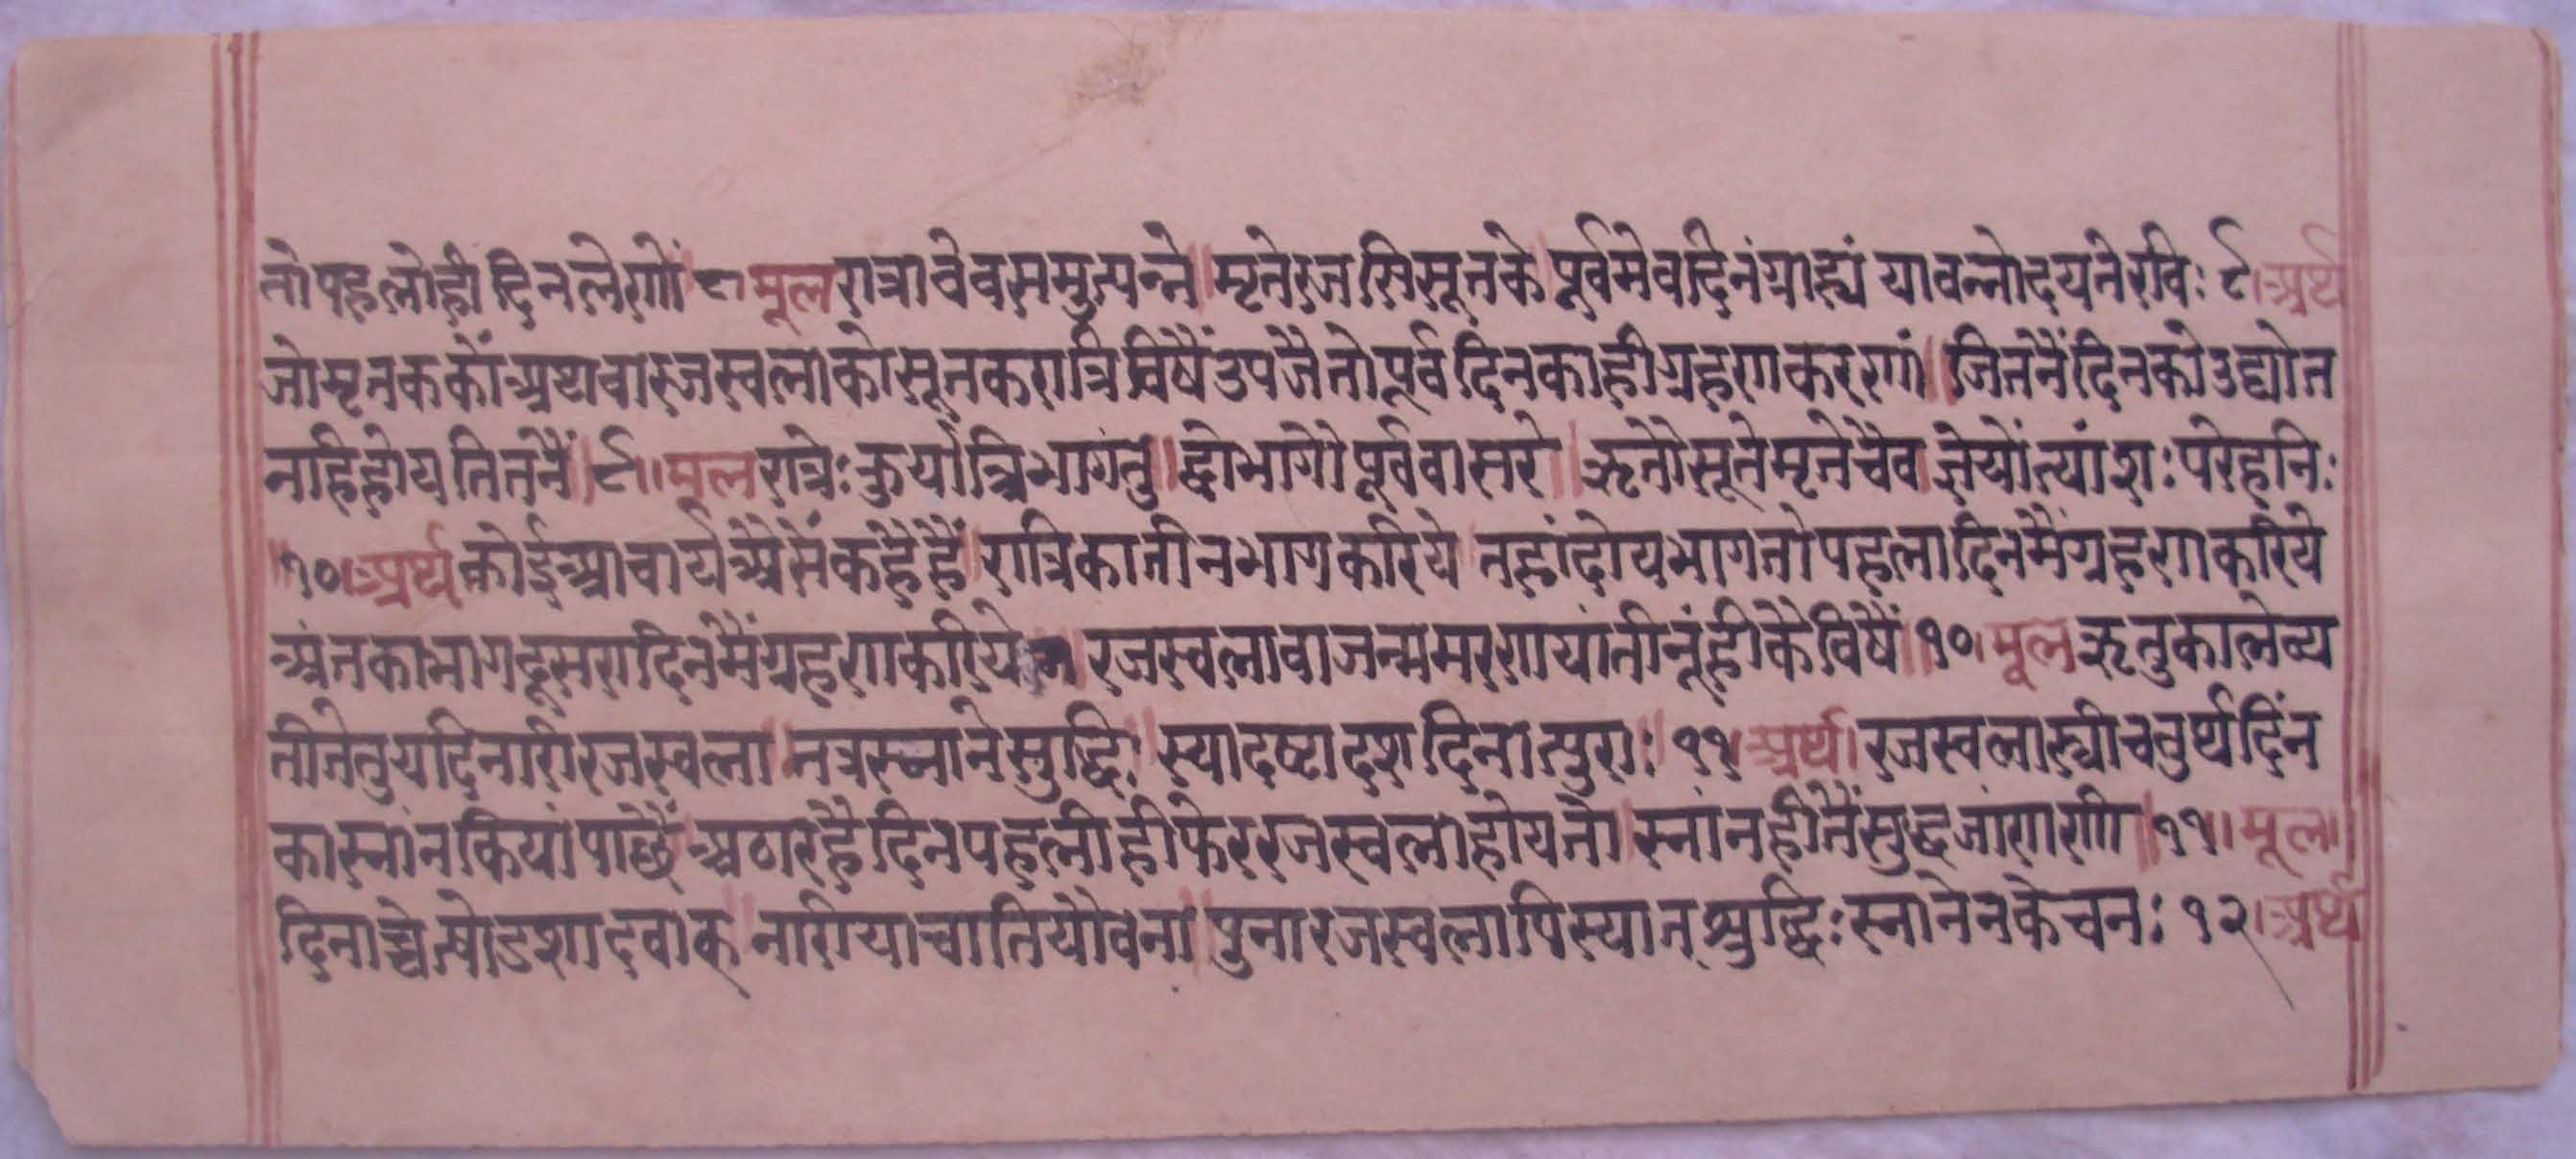 तो पहलो ही दिन लेणों ८ मूल रात्रावेव समुत्पन्ने ॥ मृते रजसि सूतके ॥ पूर्वमेव दिनं ग्राह्यं यावन्नोदयते रविः ९। अर्थ
जो मृतक कों अथवा रजस्वला को सूतक रात्रि विषैं उपजै तो पूर्व दिन का ही ग्रहण करणां ॥ जितनैं दिन को उद्योत
नाहि होय तितनैं ॥ ९ ॥ मूल रात्रेः कुर्यात्त्रिभागंतु ॥ द्वोभागौ पूर्ववासरे ॥ ऋतौ सूते मृते चैव ज्ञेयोंत्यांशः परेहनिः
॥ १०। अर्थ कोई आचार्य अैसें कहै हैं रात्रि का तीन भाग करिये तहां दोय भाग तो पहला दिन मैं ग्रहण करिये
अंत का भाग दूसरा दिन मैं ग्रहण करिये ॥ रजस्वला वा जन्म मरण यां तीनूं ही कै विषैं ॥ १०। मूल ऋतुकालेव्य
तीतेतु यदि नारी रजस्वला ॥ तत्र स्नाने सुद्धिः ॥ स्यादष्टादश दिनात्पुराः ॥ ११ अर्थ। रजस्वला स्त्री चतुर्थ दिंन
का स्नांन कियां पाछैं अठारहै दिन पहली ही फेर रजस्वला होय तो ॥ स्नांन ही तैं सुद्ध जांणणी ॥ ११॥ मूल।
दिनाच्चेत्षोडशादवाक् ॥ नारी या चाति यौवना ॥ पुना रजस्वलापि स्यात् श्रुद्धिः स्नानेन केचनः १२। अर्थ